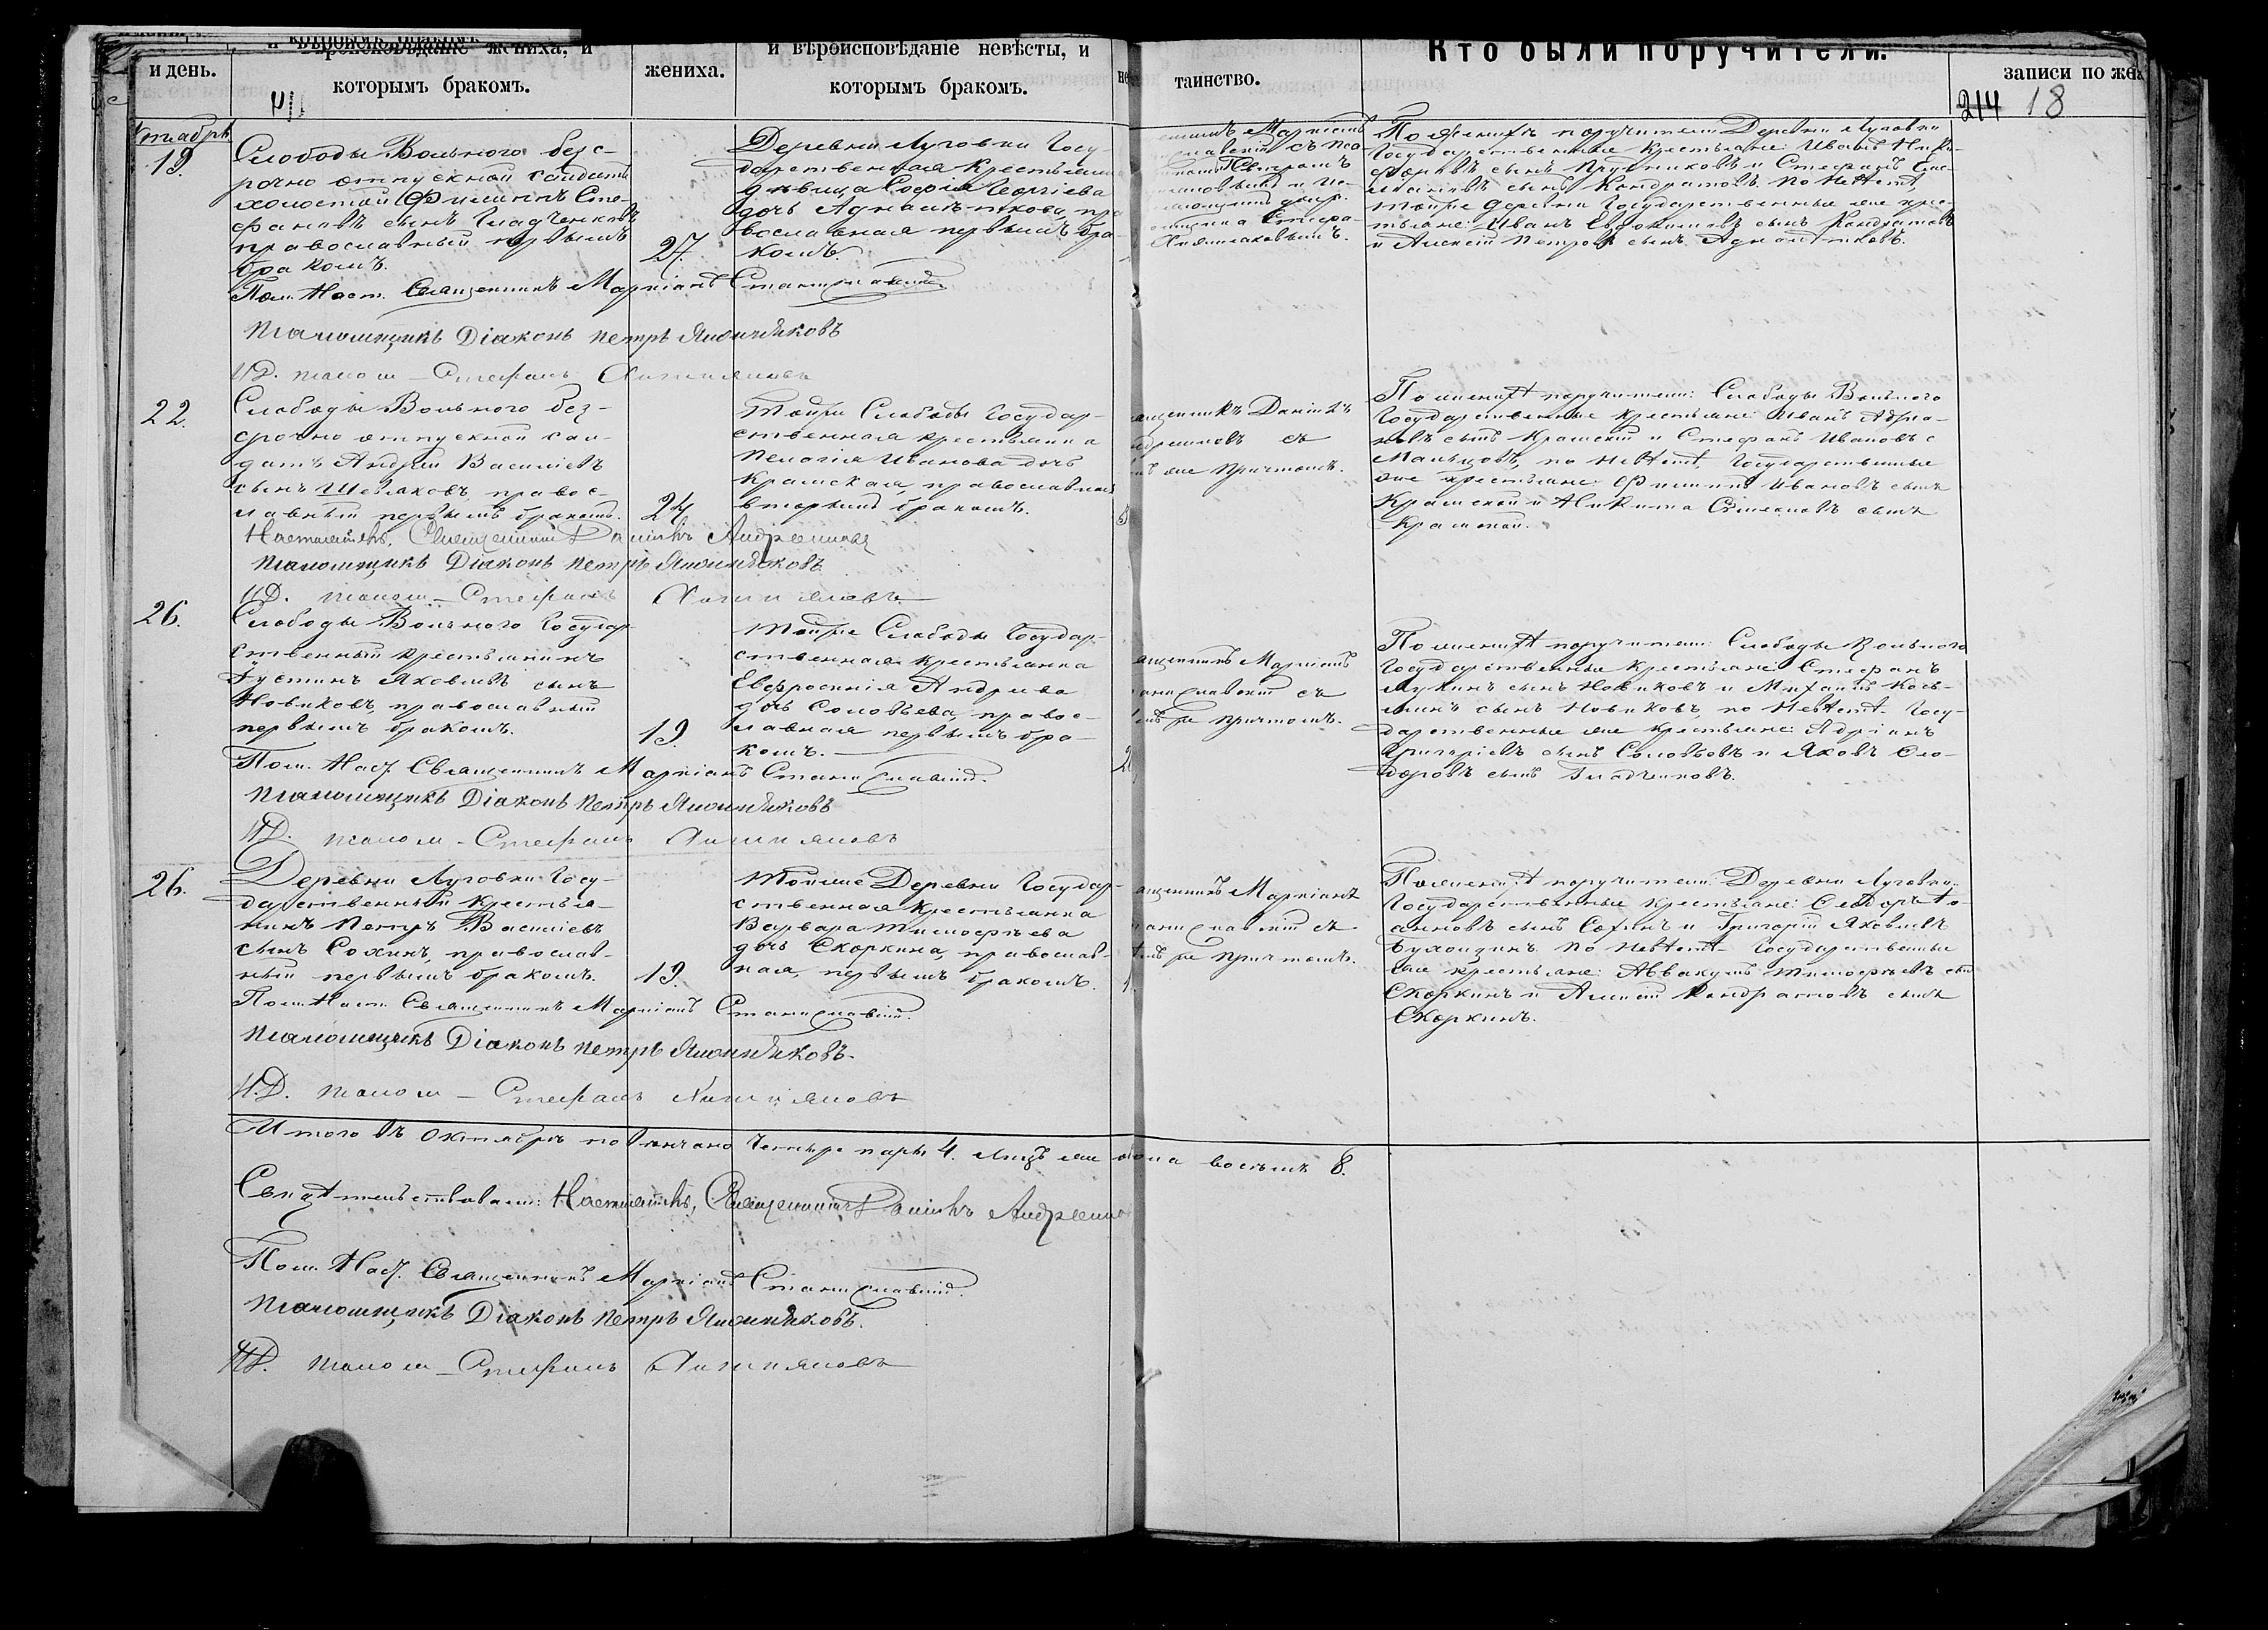 и день.
вѣроисповѣданіе жениха, и
которымъ бракомъ.
жениха.
и вѣроисповѣданіе невѣсты, и
которымъ бракомъ.
таинство.
Кто были поручители.
записи по же
214 18
19.
Слободы Вольнаго без-
рочно отпускной солдатъ
холостой Филиппъ Сте-
фановъ сынъ Гладченковъ
православный первымъ
бракомъ.
27.
Деревни Луговки Госу-
дарственная крестьянка
дѣвица Софія Георгіева
дочь
вославная первымъ бра-
комъ.
Маркіанъ
съ пса-
Петромъ
Стефа-
По женихѣ поручители Деревни Луговки
Государственные крестьяне: Иванъ
сынъ Прудниковъ и Стефанъ
сынъ Кондратовъ. по невѣстѣ,
тойже деревни Государственные же крес-
тьяне: Иванъ Евдокимовъ сынъ Кондратовъ
и Алексій Петровъ сынъ
Пом. Наст. Священникъ Маркіанъ Станиславскій
Псаломщикъ Діаконъ Петръ
И.Д. псалом-Стефанъ
22.
Слободы Вольнаго без-
срочно отпускной сол-
датъ Андрей Василіевъ
сынъ Шевляковъ, правос-
лавный первымъ бракомъ.
24
Тойже Слободы Государ-
ственная крестьянка
Пелагія Иванова дочь
Крамская, православная
вторымъ бракомъ.
ященникъ Даніилъ
съ
же причтомъ.
По женихѣ поручители: Слободы Вольнаго
Государственные крестьяне: Иванъ
сынъ Крамской и Стефанъ Ивановъ с
Мальцовъ, по невѣстѣ, Государственные
же крестьяне: Филиппъ Ивановъ сынъ
Крамской и Никита Симеоновъ сынъ
Крамской.
Настоятель, Священникъ Даніилъ
Псаломщикъ Діаконъ Петръ
И.Д. псалом-Стефанъ
26.
Слободы Вольнаго Государ-
ственный крестьянинъ
Іустинъ Яковлевъ сынъ
Новиковъ, православный
первымъ бракомъ.
19.
Тойже Слободы Государ-
ственная крестьянка
Евфросинія Андреева
дочь Соловьева, правос-
лавная первымъ бра-
комъ.
2
ященникъ Маркіанъ
аниславскій съ
же причтомъ.
По женихѣ поручители: Слободы Вольнаго
Государственные крестьяне: Стефанъ
Лукинъ сынъ Новиковъ и Михаилъ Кось-
минъ сынъ Новиковъ, по невѣстѣ. Госу-
дарственные же крестьяне: Адріанъ
Григоріевъ сынъ Соловьевъ и Яковъ Ѳео-
доровъ сынъ Гладченковъ.
Пом. Наст. Священникъ Маркіанъ Станиславскій.
Псаломщикъ Діаконъ Петръ
И.Д. псалом-Стефанъ
26.
Деревни Луговки Госу-
дарственный крестья-
нинъ Петръ Василіевъ
сынъ Сохинъ, православ-
ный первымъ бракомъ.
19.
Тойже Деревни Государ-
ственная крестьянка
Варвара Тимофѣева
дочь Скоркина, православ-
ная, первымъ бракомъ.
ященникъ Маркіанъ
аниславскій съ
же причтомъ.
По женихѣ поручители: Деревни Луговки
Государственные крестьяне: Ѳеодоръ Іо-
анновъ сынъ Сохинъ и Григорій Яковлевъ
по невѣстѣ Государственные
же крестьяне: Аввакумъ Тимофѣевъ сын
Скоркинъ и Алексій Кондратовъ сынъ
Скоркинъ.
Пом. Наст. Священникъ Маркіанъ Станиславскій.
Псаломщикъ Діаконъ Петръ
И.Д. псалом-Стефанъ
Итого въ Октябрѣ повѣнчано четыре пары 4. лицъ же обоего пола восемь 8.
Свидѣтельствовали: Настоятель, Священникъ Даніилъ
Пом. Наст. Священникъ Маркіанъ Станиславскій.
Псаломщикъ Діаконъ Петръ
И.Д. псалом-Стефанъ